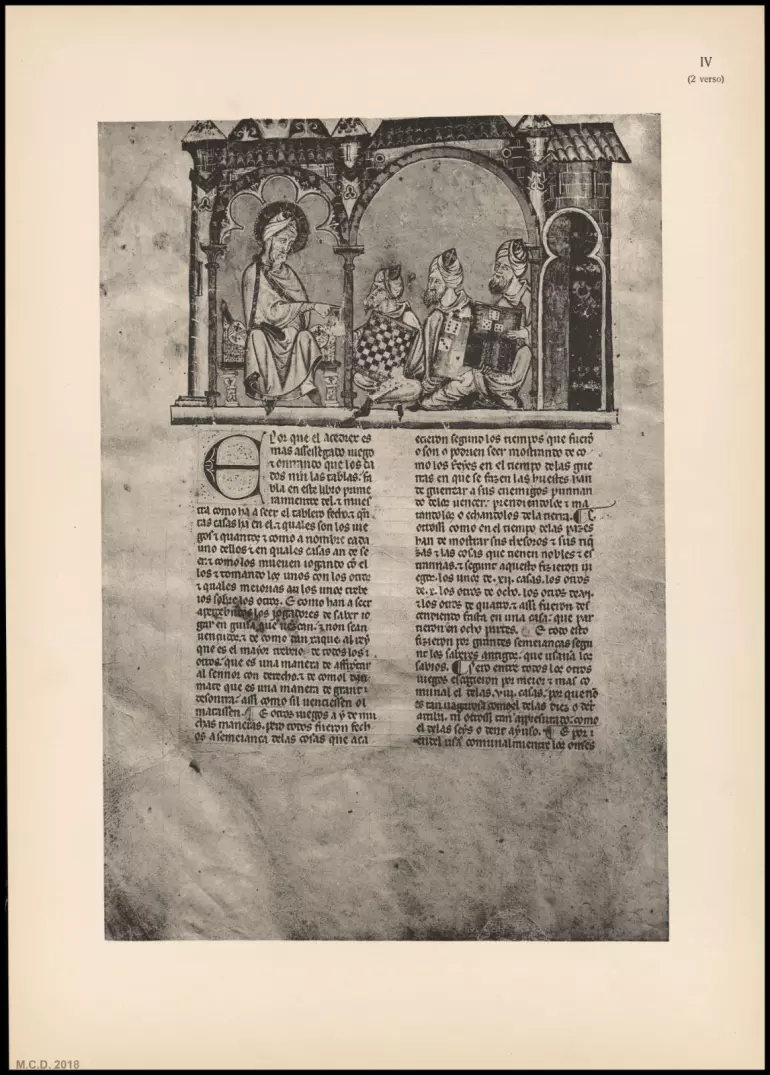 IV
(2 verso)
Por que el acedrex es
mas assessegado iuego
⁊ onrrado que los da
dos nin las tablas. fa
bla en este libro prime
ramientre del. ⁊ mues
tra como ha a seer el tablero fecho. ⁊ qn
tas casas ha en el. ⁊ quales son los iue
gos ⁊ quantos ⁊ como a nombre cada
uno dellos ⁊ en quales casas an de se
er. ⁊ como los mueuen iogando cõ el
los ⁊ tomando los unos con los otros
⁊ quales meiorias an los unos trebe
ios sobre los otros. E como han a seer
apercebudos los iogadores de saber io
gar en guisa que uezcan. ⁊ non sean
uençudos. ⁊ de como dan xaque al rey
que es el mayor trebeio de todos los
otros. que es una manera de affrontar
al sennor con derecho. ⁊ de comol dan
mate que es una manera de grant
desonrra. assi como sil uenciessen ol
matassen. E otros iuegos a y de mu
chas maneras. pero todos fueron fech
os a semeiança delas cosas que aca
ecieron segundo los tiempos que fuerõ
o son o podrien seer mostrando de co
mo los Reyes en el tiempo delas gue
rras en que se fazen las huestes han
de guerrear a sus enemigos punnan
do delos uencer. prendiendolos ⁊ ma
tandolos o echandolos dela tierra. E
otrossi como en el tiempo delas pazes
han de mostrar sus thesoros ⁊ sus riq
zas ⁊ las cosas que tienen nobles ⁊ es
trannas. ⁊ segunt aquesto fizieron iu
egos. los unos de .xij. casas. los otros
de .x. los otros de ocho. los otros de .vi.
⁊ los otros de quatro. ⁊ assi fueron des
cendiendo fasta en una casa. que par
tieron en ocho partes. E todo esto
fizieron por grandes semeianças segu
nt los saberes antigos. que usauan los
sabios. Pero entre todos los otros
iuegos escogieron por meior ⁊ mas co
munal el delas .viij. casas. por que nõ
es tan uagaroso como el delas diez o dent
arriba. ni otrossi tan appressurado. como
el delas seys o dent ayuso. E por
ende usan comunalmientre los omnes
M.C.D. 2018